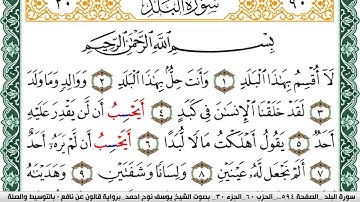 ٢٠ سُورَةُ البَلَدِ ٩٠
بِسْمِ اللَّهِ الرَّحْمَٰنِ الرَّحِيمِ
لَا أُقْسِمُ بِهَٰذَا الْبَلَدِ ١ وَأَنتَ حِلٌّ بِهَٰذَا الْبَلَدِ ٢ وَوَالِدٍ وَمَا وَلَدَ
٣ لَقَدْ خَلَقْنَا الْإِنسَٰنَ فِي كَبَدٍ ٤ أَيَحْسِبُ أَن لَّن يَقْدِرَ عَلَيْهِ
أَحَدٌ ٥ يَقُولُ أَهْلَكْتُ مَالًا لُّبَدًا ٦ أَيَحْسِبُ أَن لَّمْ يَرَهُۥ أَحَدٌ
٧ أَلَمْ نَجْعَل لَّهُۥ عَيْنَيْنِ ٨ وَلِسَانًا وَشَفَتَيْنِ ٩ وَهَدَيْنَٰهُ
سورة البلد _ الصفحة ٥٩٤ _ الحزب ٦٠ _ الجزء ٣٠ _ بصوت الشيخ يوسف نوح احمد _ برواية قالون عن نافع - بالتوسيط والصلة